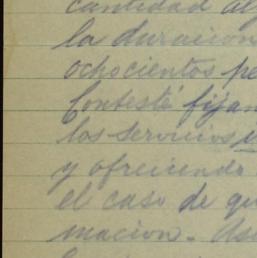 cantidad al
la duración
ochocientos pe
Contesté fijan
los servicios
y ofreciendo
el caso de qu
macion. As